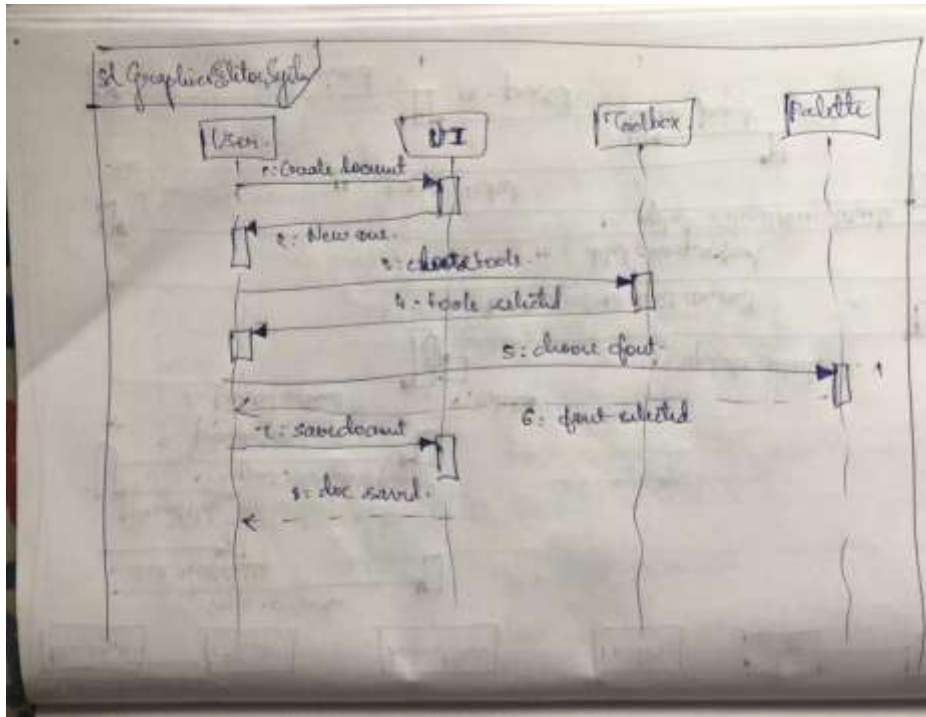 sd GraphicsEditorSystem
User
UI
Toolbox
Palette
1: Create document
2: New one.
3: choose tools
4: tools selected
5: choose font
6: font selected
7: save document
8: doc saved.